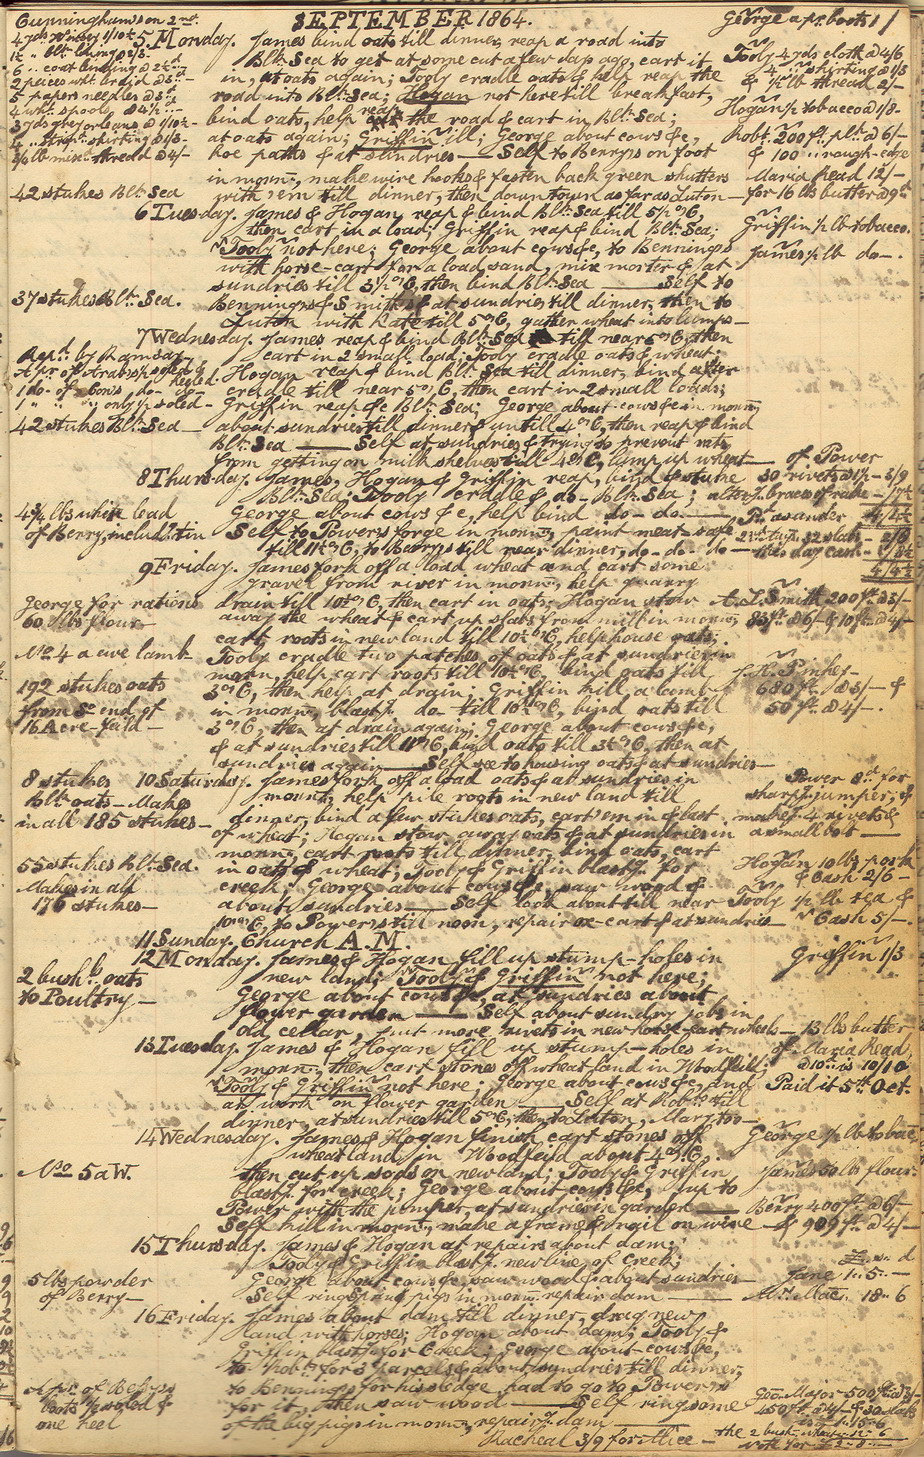 SEPTEMBER 1864.
Cunninghams on 2nd.
George a pr. boots 1/
5 Monday. James bind oats till dinner, reap a road into
Blk. Sea to get at some cut a few days ago, cart it
in, at oats again; Tooly cradle oats & help reap the
road into Blk. Sea; Hogan not here till breakfast,
bind oats, help reap the road & cart in Blk. Sea;
at oats again; Griffin ill; George about cows &c,
hoe paths & at sundries — Self to Berry's on foot
in morng, make wire hooks & fasten back green shutters
with 'em till dinner, then down town as far as Luton —
Tooly 4 yds cloth @ 4/6
shirting @ 1/3
& lb thread 2/-
Hogan ½ tobacco @ 1/8-
Robt. 200 ft. plk @ 6/-
& 100 rough-edge
Maria Read 12/-
for 16 lbs butter @ 9d
42 stukes Blk. Sea
6 Tuesday. James & Hogan reap & bind Blk. Sea till 5½ o'C,
then cart in a load; Griffin reap & bind Blk. Sea;
Tooly not here; George about cows &c, to Bennings
with horse-cart for a load sand, mix morter & at
sundries till 3½ o'C, then bind Blk. Sea — Self to
Bennings & Smiths & at sundries till dinner, then to
Luton with Kate till 5 o'C, gather wheat into lumps —
Griffin ½ lb tobacco.
James ½ lb do —.
37 stukes Blk. Sea.
7 Wednesday. James reap & bind Blk. Sea till near 5 o'C, then
cart in 2 small load; Tooly cradle oats & wheat;
Hogan reap & bind Blk. Sea till dinner, bind after
cradle till near 5 o'C, then cart in 2 small loads;
Griffin reap &c Blk. Sea; George about cows &c in morng
about sundries till dinner & until 4 o'C, then reap & bind
Blk. Sea — Self at sundries & trying to prevent rats
from getting on milk shelves till 4 o'C, lump up wheat —
Repd. by Ramsay
42 stukes Blk. Sea —
8 Thursday. James, Hogan & Griffin reap, bind & stuke
Blk. Sea; Tooly cradle & do — Blk. Sea;
George about cows &c, help bind do — do —
Self to Powers forge in morng, paint meat-safe
till 11½ o'C, to Berrys till near dinner, do — do — do —
of Power
30 rivets 3/9
4½ lbs white lead
of Berry, includg. tin
9 Friday. James fork off a load wheat and cart some
gravel from river in morng, help quarry
drain till 10½ o'C, then cart in oats; Hogan stow
away the wheat & cart up slabs from mill in morng,
cart roots in new land till 10½ o'C, help house oats;
Tooly cradle two patches of oats & at sundries in
morng, help cart roots till 10½ o'C, bind oats till
3 o'C, then help at drain; Griffin kill a lamb
in morng, blastg. do — till 10½ o'C, bind oats till
3 o'C, then at drain again; George about cows &c,
& at sundries till 11 o'C, bind oats till 3½ o'C, then at
sundries again — Self see to housing oats & at sundries —
George for rations
60 lbs flour —
No 4 a ewe lamb —
192 stukes oats
from So. end of
16 Acre-Field —
A. T. Smith 200 ft. @ 3/-
83 ft @ 6/- & 10 ft. @ 4/-
680 ft. @ 3/- &
50 ft. @ 4/-.
10 Saturday. James fork off a load oats & at sundries in
morng, help pile roots in new land till
dinner, bind a few stukes oats, cart 'em in & last
of wheat; Hogan stow away oats & at sundries in
morng, cart roots till dinner, bind oats, cart
in oats & wheat; Tooly & Griffin blastg. for
creek; George about cows &c, saw wood &
about sundries — Self look about till near
10 o'C, to Powers till noon, repair ox-cart & at sundries —
8 stukes
Blk. oats — Makes
in all 185 stukes —
55 stukes Blk. Sea.
Makes in all
176 stukes —
Power 8d. for
sharpg. jumper, &
makeg. 4 rivets &
a small bolt —
Hogan 10 lbs pork
& Cash 2/6 —
Tooly ½ lb tea &
Cash 5/-.
11 Sunday. Church A.M.
12 Monday. James & Hogan fill up stump-holes in
new land; Tooly & Griffin not here;
George about cows &c, at sundries about
flower garden — Self about sundry jobs in
old cellar, put more rivets in new horse-cart wheels —
Griffin 1/3
2 bush. b. oats
to Poultry —
13 Tuesday. James & Hogan fill up stump-holes in
morng, then cart stones off wheat land in Woodfield;
Tooly & Griffin not here; George about cows &c, and
at work on flower garden — Self at Robts. till
dinner, at sundries till 5 o'C, then to Luton, Maryton —
13 lbs butter
of Maria Read,
@ 10d. is 10/10
Paid it 5th Oct.
14 Wednesday. James & Hogan finish cart stones off
wheat land in Woodfield about 4 o'C.
then cut up sods on new land; Tooly & Griffin
blastg. for creek; George about cows &c, jump to
Power with the jumper, at sundries in garden —
Self kill in morng, make a frame & nail on wire —
George ½ lb tobac.
James 50 lbs flour.
Berry 400 ft. @ 6/-
& 909 ft. @ 4/-
No 5 a W.
15 Thursday. James & Hogan at repairs about dam;
Tooly & Griffin blastg. new line of Creek;
George about cows &c, saw wood & about sundries —
Self ring 5 pigs in morng, repair dam —
£ s. d
Jane 1.. 5..—
Mrs. Mac. 18.. 6
5 lbs powder
of Berry —
16 Friday. James about dam till dinner, drag new
land with horses; Hogan about dam; Tooly &
Griffin blastg. for Creek; George about cows &c,
to Robts. for 3 parcels & about sundries till dinner,
to Bennings for his sledge, had to go to Powers
for it, then saw wood — Self ring some
of the big pigs in morng, repairg. dam —
Racheal 3/9 for Alice —
boots ½ soled &
one heel
Geo. Major 500 ft. @ 3/-
the 2 bush. wheat 12.. 6